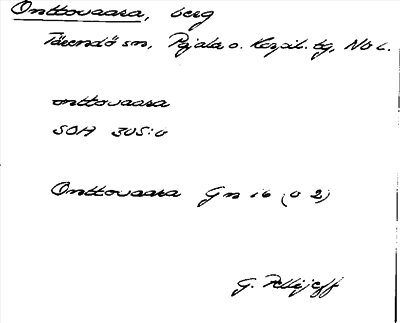 Onttovaara, berg
Tärendö sn, Pajala o. Korpil. tg, Nb l.
onttovaara
SOA 305:6
Onttovaara Gn 16 (o 2)
G. Pellijeff